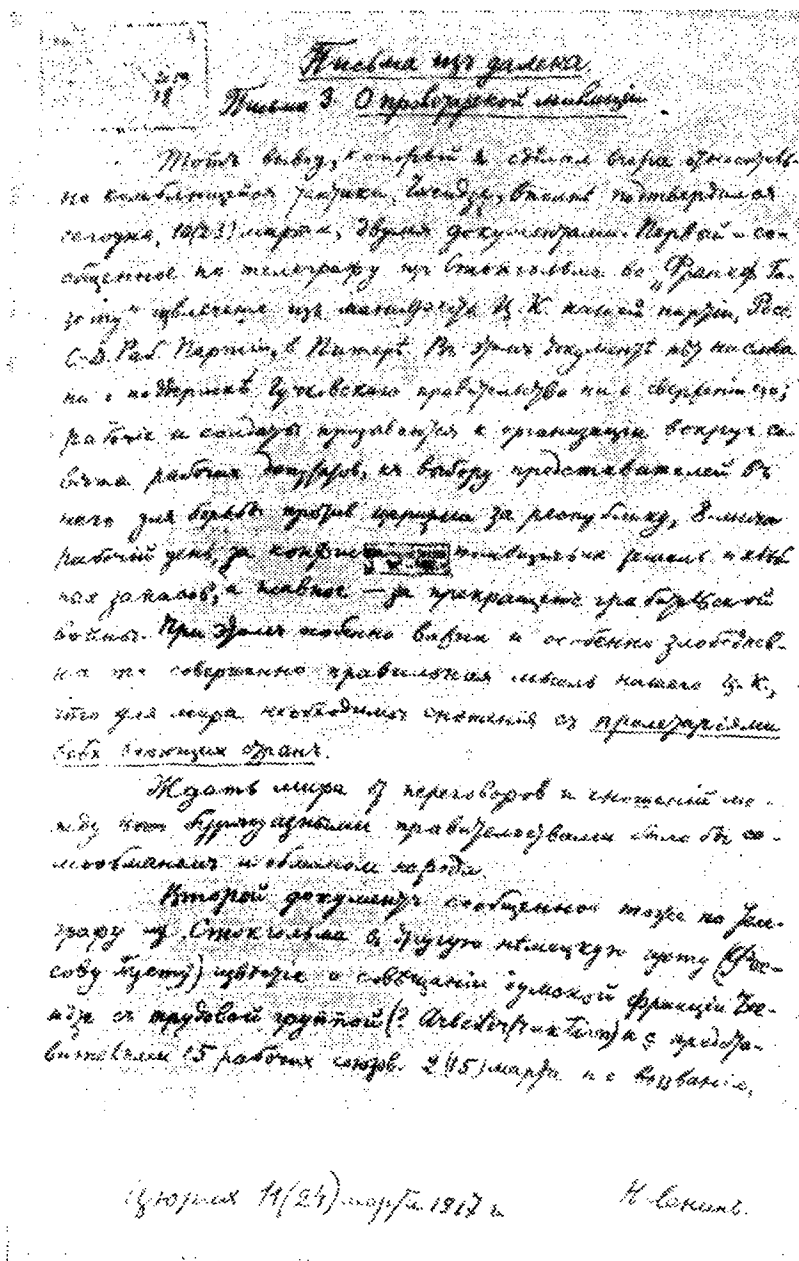 Письма изъ далека
Письмо 3. О пролетарской милиціи.
Тотъ выводъ, который я сдѣлал вчера относитель-
но колеблющейся тактики Чхеидзе, вполнѣ подтвердился
сегодня, 10 (23) марта, двумя документами. Первый – со-
общенное по телеграфу изъ Стокгольма во „Франкф. Га-
зету“ извлеченіе изъ манифеста Ц. К. нашей партіи, Росс.
С.-Д. Раб. Партіи, в Питерѣ. Въ этомъ документѣ нѣт ни слова
ни о поддержкѣ Гучковского правительства ни о сверженіи его;
рабочіе и солдаты призываются к организаціи вокруг со-
вѣта рабочих депутатов, къ выбору представителей въ
него для борьбы против царизма за республику, 8-мичас
рабочій день, за конфис помѣщичьих земель и хлѣб
ных запасов, а главное — за прекращеніе грабительской
войны. При этомъ особенно важна и особенно злободнев-
на та совершенно правильная мысль нашего Ц. К.,
что для мира необходимы сношения съ пролетаріями
всѣх воюющих стран.
Ждать мира от переговоров и сношеній ме-
жду буржуазными правительствами было бы са-
мообманом и обманом народа.
Второй документъ сообщенное тоже по теле-
графу из Стокгольма в другую нѣмецкую газету (Фос-
сову Газету) извѣстіе о совѣщаніи думской фракціи Чхе-
идзе съ трудовой группой (? Arbeiterfraktion) и с предста-
вителями 15 рабочих союзов 2 (15) марта и о воззваніи,
Цюрих 11 (24) марта 1917 г.
Н Ленинъ.